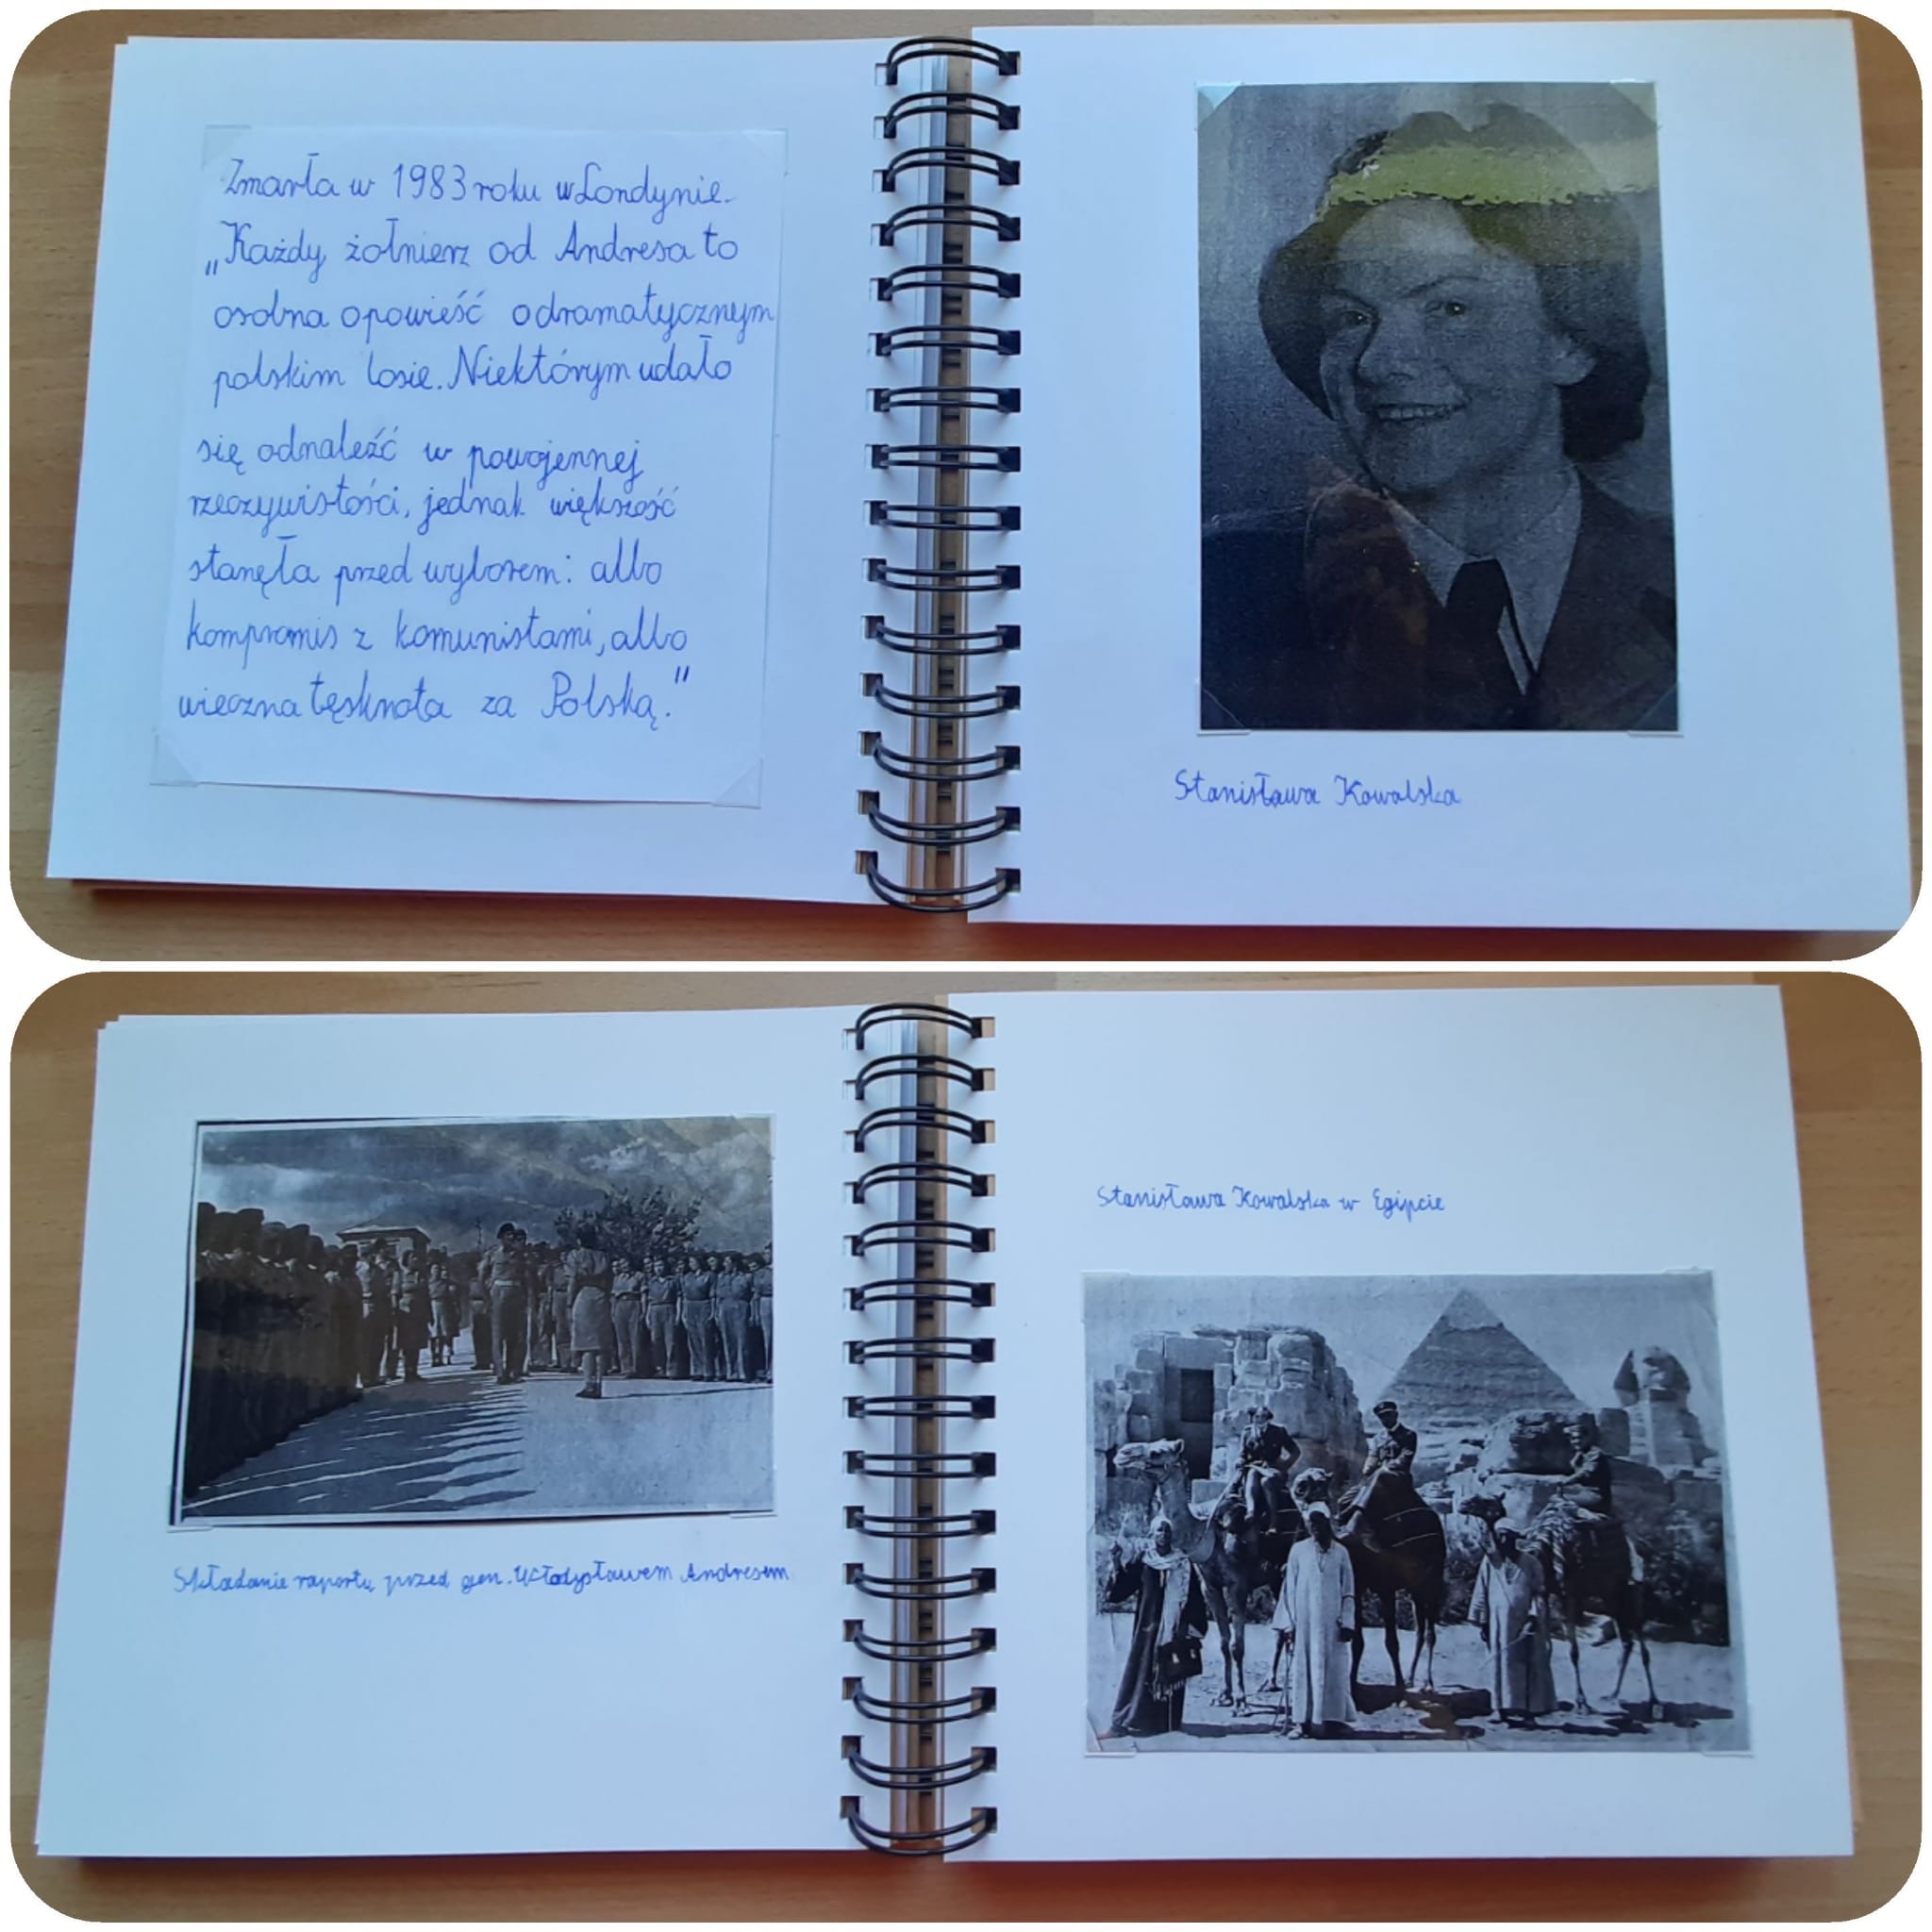 Zmarła w 1983 roku w Londynie.
„Każdy żołnierz od Andresa to
osobna opowieść o dramatycznym
polskim losie. Niektórym udało
się odnaleźć w powojennej
rzeczywistości, jednak większość
stanęła przed wyborem: albo
kompromis z komunistami, albo
wieczna tęsknota za Polską."
Stanisława Kowalska
Składanie raportu przed gen. Władysławem Andresem
Stanisława Kowalska w Egipcie